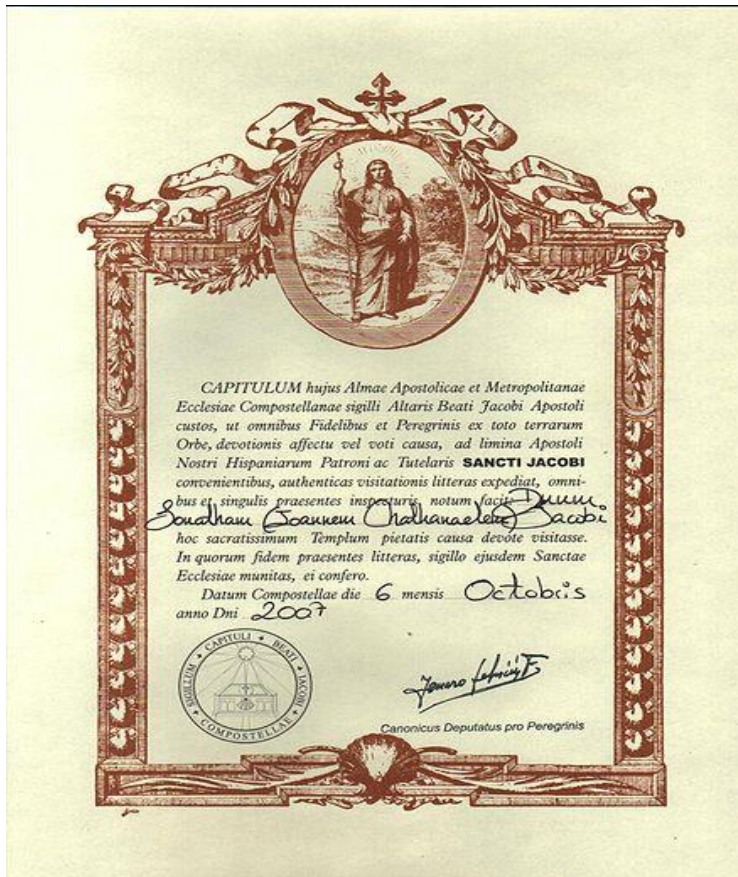 CAPITULUM hujus Almae Apostolicae et Metropolitanae
Ecclesiae Compostellanae sigilli Altaris Beati Jacobi Apostoli
custos, ut omnibus Fidelibus et Peregrinis ex toto terrarum
Orbe, devotionis affectu vel voti causa, ad limina Apostoli
Nostri Hispaniarum Patroni ac Tutelaris SANCTI JACOBI
convenientibus, authenticas visitationis litteras expediat, omni-
bus et singulis praesentes inspecturis, notum facit: Dnum
Joannem Jacobi
hoc sacratissimum Templum pietatis causa devote visitasse.
In quorum fidem praesentes litteras, sigillo ejusdem Sanctae
Ecclesiae munitas, ei confero.
Datum Compostellae die 6 mensis Octobris
anno Dni 2007
SIGILLUM CAPITULI BEATI IACOBI COMPOSTELLAE
Canonicus Deputatus pro Peregrinis